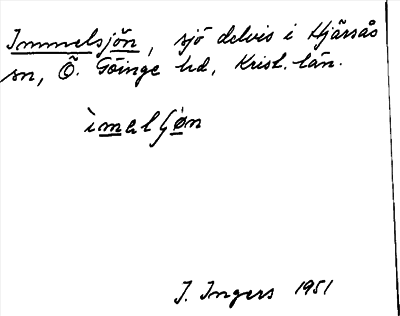 Immelsjön, sjö delvis i Hjärsås
sn, Ö. Göinge hd, Krist. län.
ìmalʃøn
I. Ingers 1951